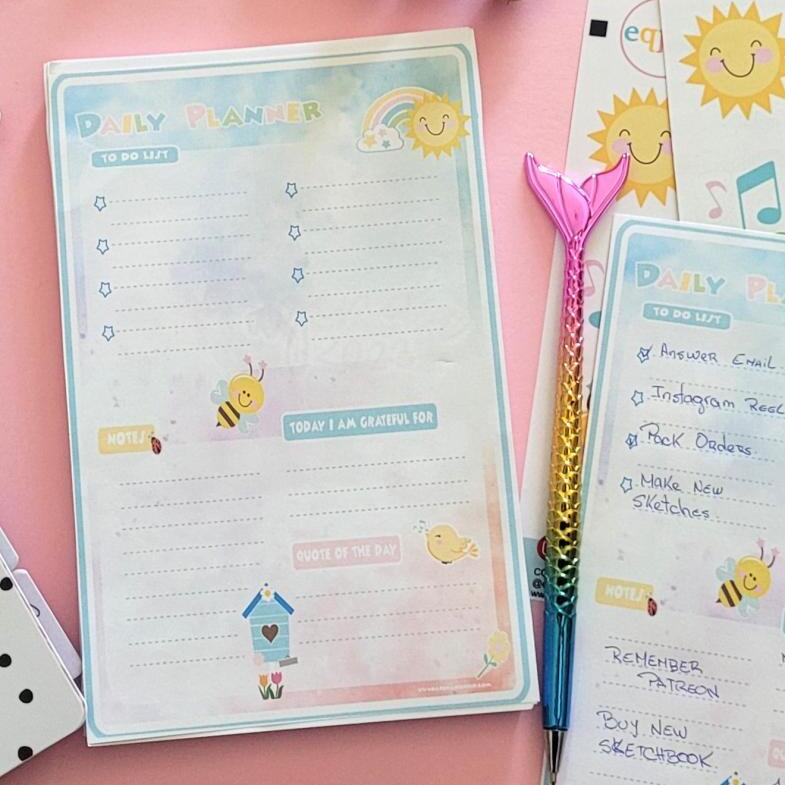 DAILY PLANNER
TO DO LIST
NOTES
TODAY I AM GRATEFUL FOR
QUOTE OF THE DAY
DAILY
TO DO LIST
Answer Email
Instagram Reel
Pack Orders
Make New
Sketches
NOTES
REMEMBER
PATREON
BUY NEW
SKETCHBOOK